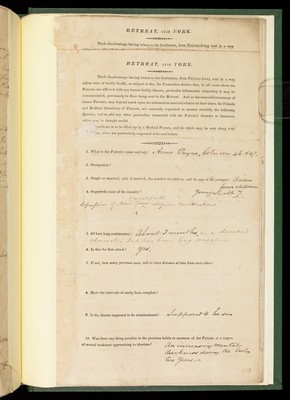 RETREAT, NEAR YORK.
Much disadvantage having arisen to the Institution, from Patients being sent in a very
RETREAT, NEAR YORK.
Much disadvantage having arisen to the Institution, from Patients being sent in a very
infirm state of bodily health, as related to the
Patients are afflicted with any known bodily disease, particular information respecting it may be
communicated, previously to their being sent to the Retreat. And as the successful treatment of
Insane Persons may depend much upon the information received relative to their cases, the Friends
and Medical Attendants of Patients, are earnestly requested to answer carefully the following
Queries, and to add any other particulars connected with the Patient's disorder or character,
which may be thought useful.
is to be filled up by a Medical Person, and the
are particularly requested to be
1. What is the Patient's name and age? Anne
2. Occupation?
3. Single or married, and, if married, the number of children, and the age of the youngest?
four children
youngest
4. Supposed cause of the insanity?
5. Of how long continuance? About 3 months, in a decided
character but has been long
6. Is this the first attack? Yes.
7. If not, how many previous ones, and at what distance of time from each other?
8. Have the intervals of sanity been complete?
9. Is the disease supposed to be constitutional? Supposed to be so
10. Was there any thing peculiar in the previous habits or manners of the Patient, or a degree
of mental weakness approaching to idiotism?
An increasing mental
weakness during the last
two years.